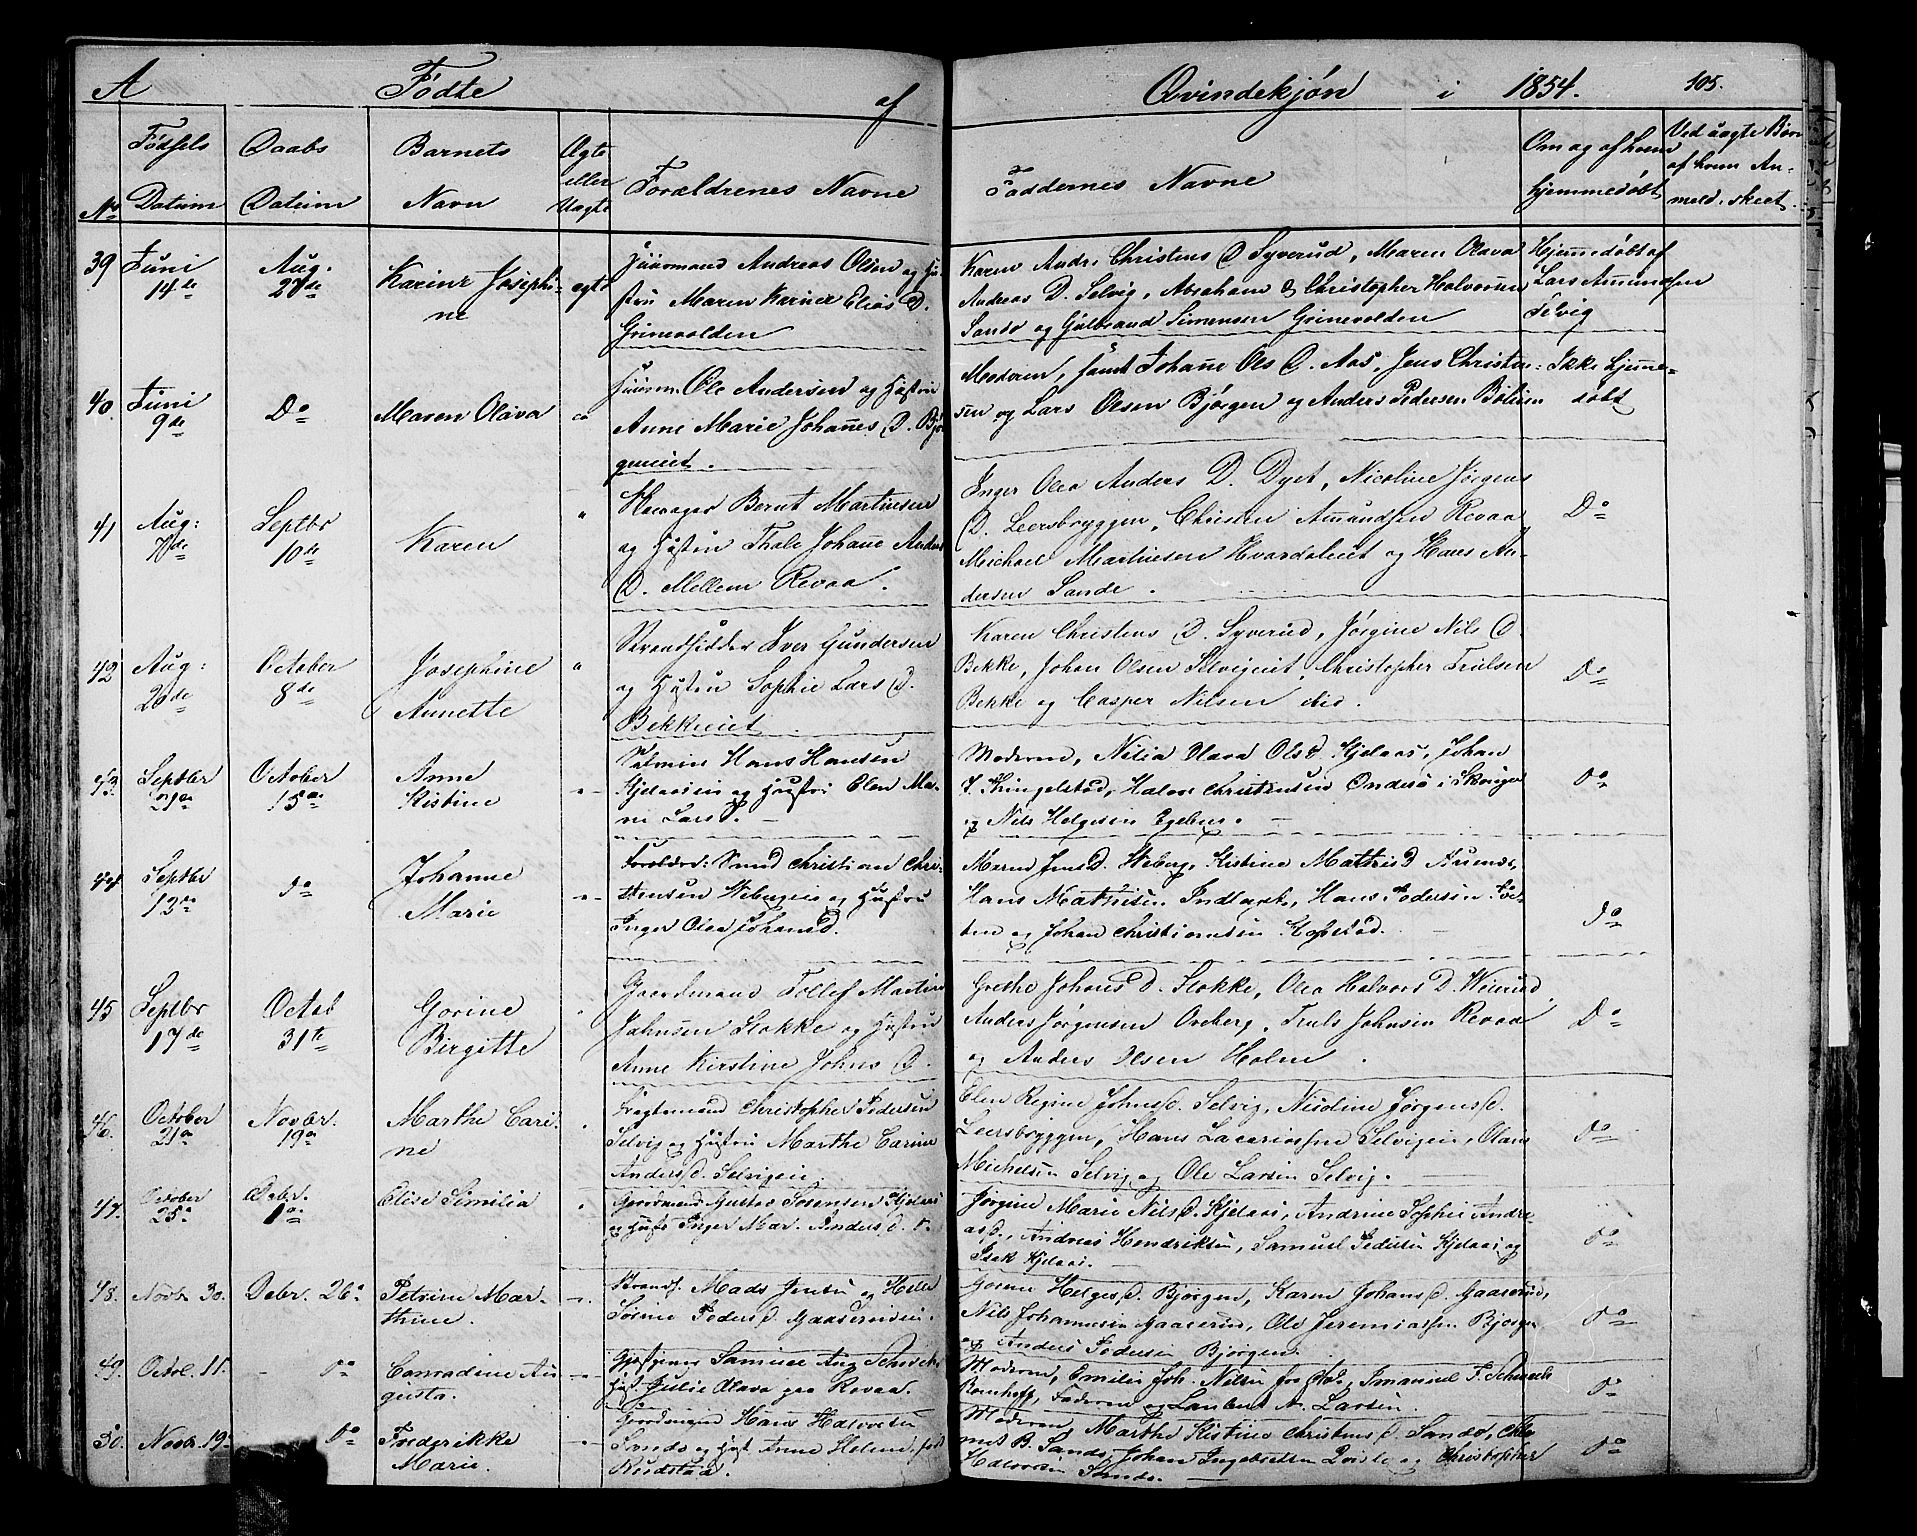 A Fødte af Qvindekjøn i 1854. 105.
No Fødsels Datum Daabs Datum Barnets Navn Ægte eller Uægte Forældrenes Navne Faddernes Navne Om og af hvem hjemmedøbt Ved uægte Børn af hvem Anmeld. skeet.
39 Juni 14de Aug. 27de Karine Josephi-
ne ægte Huusmand Andreas Olsen og Hu-
stru Maren Karine Elias D.
Grinevolden
Karen Andr. Christens D Syverud, Maren Olava
Andreas D. Selvig, Abraham & Christopher Halvorsen
Sando og Gulbrand Simensen Grinevolden
Hjemmedøbt af
Lars Amundsen
Selvig
40. Juni 9de Do Maren Olava do Huusm. Ole Andersen og Hustru
Anne Marie Johannes D. Bjør-
geneiet.
Moderen, samt Johanne Ols D. Aas, Jens Christen-
sen og Lars Olsen Bjørgen og Anders Pedersen
Ikke hjemme-
døbt
41 Aug: 7de Septbr 10de Karen " Bernt Martinsen
og Hustru Thale Johanne Anders
D. Mellem Revaa.
Inger Olea Anders D. Dyet, Nicoline Jørgens
D. Leersbryggen, Christen Amundsen Revaa
Michael Martinsen og Hans An-
dersen Sande.
Do
42 Aug: 20de October 8de Josephine
Annette " Strandsidder Iver Gundersen
og Hustru Sophie Lars D.
Bekkeeiet
Karen Christens D. Syverud, Jørgine Nils D.
Bekke, Johan Olsen Selvigeiet, Christopher Trulsen
Bekke og Casper Nilsen ibid.
Do
43. Septbr 21de October 15de Anne
Kistine -"- Hans Hansen
Kjelaasen og Hustru Elen Ma-
rie Larsd. -
Moderen, Nilia Olava Olsd. Kjelaas, Johan
J. Kringelstad, Halvor Christensen i Skouger
og Nils Helgesen Egeberg. -
do
44 Septbr 13de do Johanne
Marie -"- Forældre: Smed Christian Chri-
stensen Webergeie og Hustru
Inger Olea Johansd.
Maren Jensd. Weberg, Kistine Mathisd
Hans Mathisen, Hans Pedersen
og Johan Christiansen Kopstad.
do
45 Septbr 17de Octob 31te Gorine
Birgitte " Gaardmand Tollef Martin
Johnsen Stokke og Hustru
Anne Kirstine Johns D.
Grethe Johans D. Stokke, Olea Halvors D. Weierud
Anders Jørgensen Oreberg, Truls Johnsen Revaa
og Anders Olsen Holm.
Do
46. October 21de Novbr. 19de Marthe Cari-
ne " Christopher Pedersen
Selvig og Hustru Marthe Carine
Andersd. Selvigeie
Elen Regine Johnsd. Selvig, Nicoline Jørgensd.
Leersbryggen, Hans Lacariassen Selvigeie, Olaus
Michelsen Selvig og Ole Larsen Selvig. -
do
47. October 25de Decbr. 1de Elise Similia " Gaardmand Gustav Sørensen Kjelaas
og Hustr Inger Mar. Andersd. do
Jørgine Marie Nilsd. Kjelaas, Andrine Sophie Andre-
asd., Andreas Hendriksen, Samuel Pedersen Kjelaas og
Isak Kjelaas. -
do
48. Novbr 30. Decbr. 26de Petrine Mar-
thine. -"- Strands. Mads Jensen og Helle
Sørine Pedersd. Gaaserudeie.
Gorene Helgesd. Bjørgen, Karen Johansd. Gaaserud,
Nils Johannesen Gaaserud, Ole Jeremiassen Bjørgen
og Anders Pedersen Bjørgen.
do
49. Octbr. 11. - do Conradine Au-
gusta. -"- Gjæstgiver Samuel Aug Schwenke
Hust. Julie Olava paa Revaa.
Moderen, Emilie Joh. Nilsen fra, Imanuel F. Schwenke
Romhoff, Faderen og Lambert N. Larsen.
do
50. Novbr. 19de do Frederikke
Marie. -"- Gaardmand Hans Halvorsen
Sando og Hust Anne Helene, født
Rudstaa.
Moderen, Marthe Kistine Christensd. Sando,
B. Sande, Johan Ingebretsen og Christopher
Halvorsen Sande. -
do